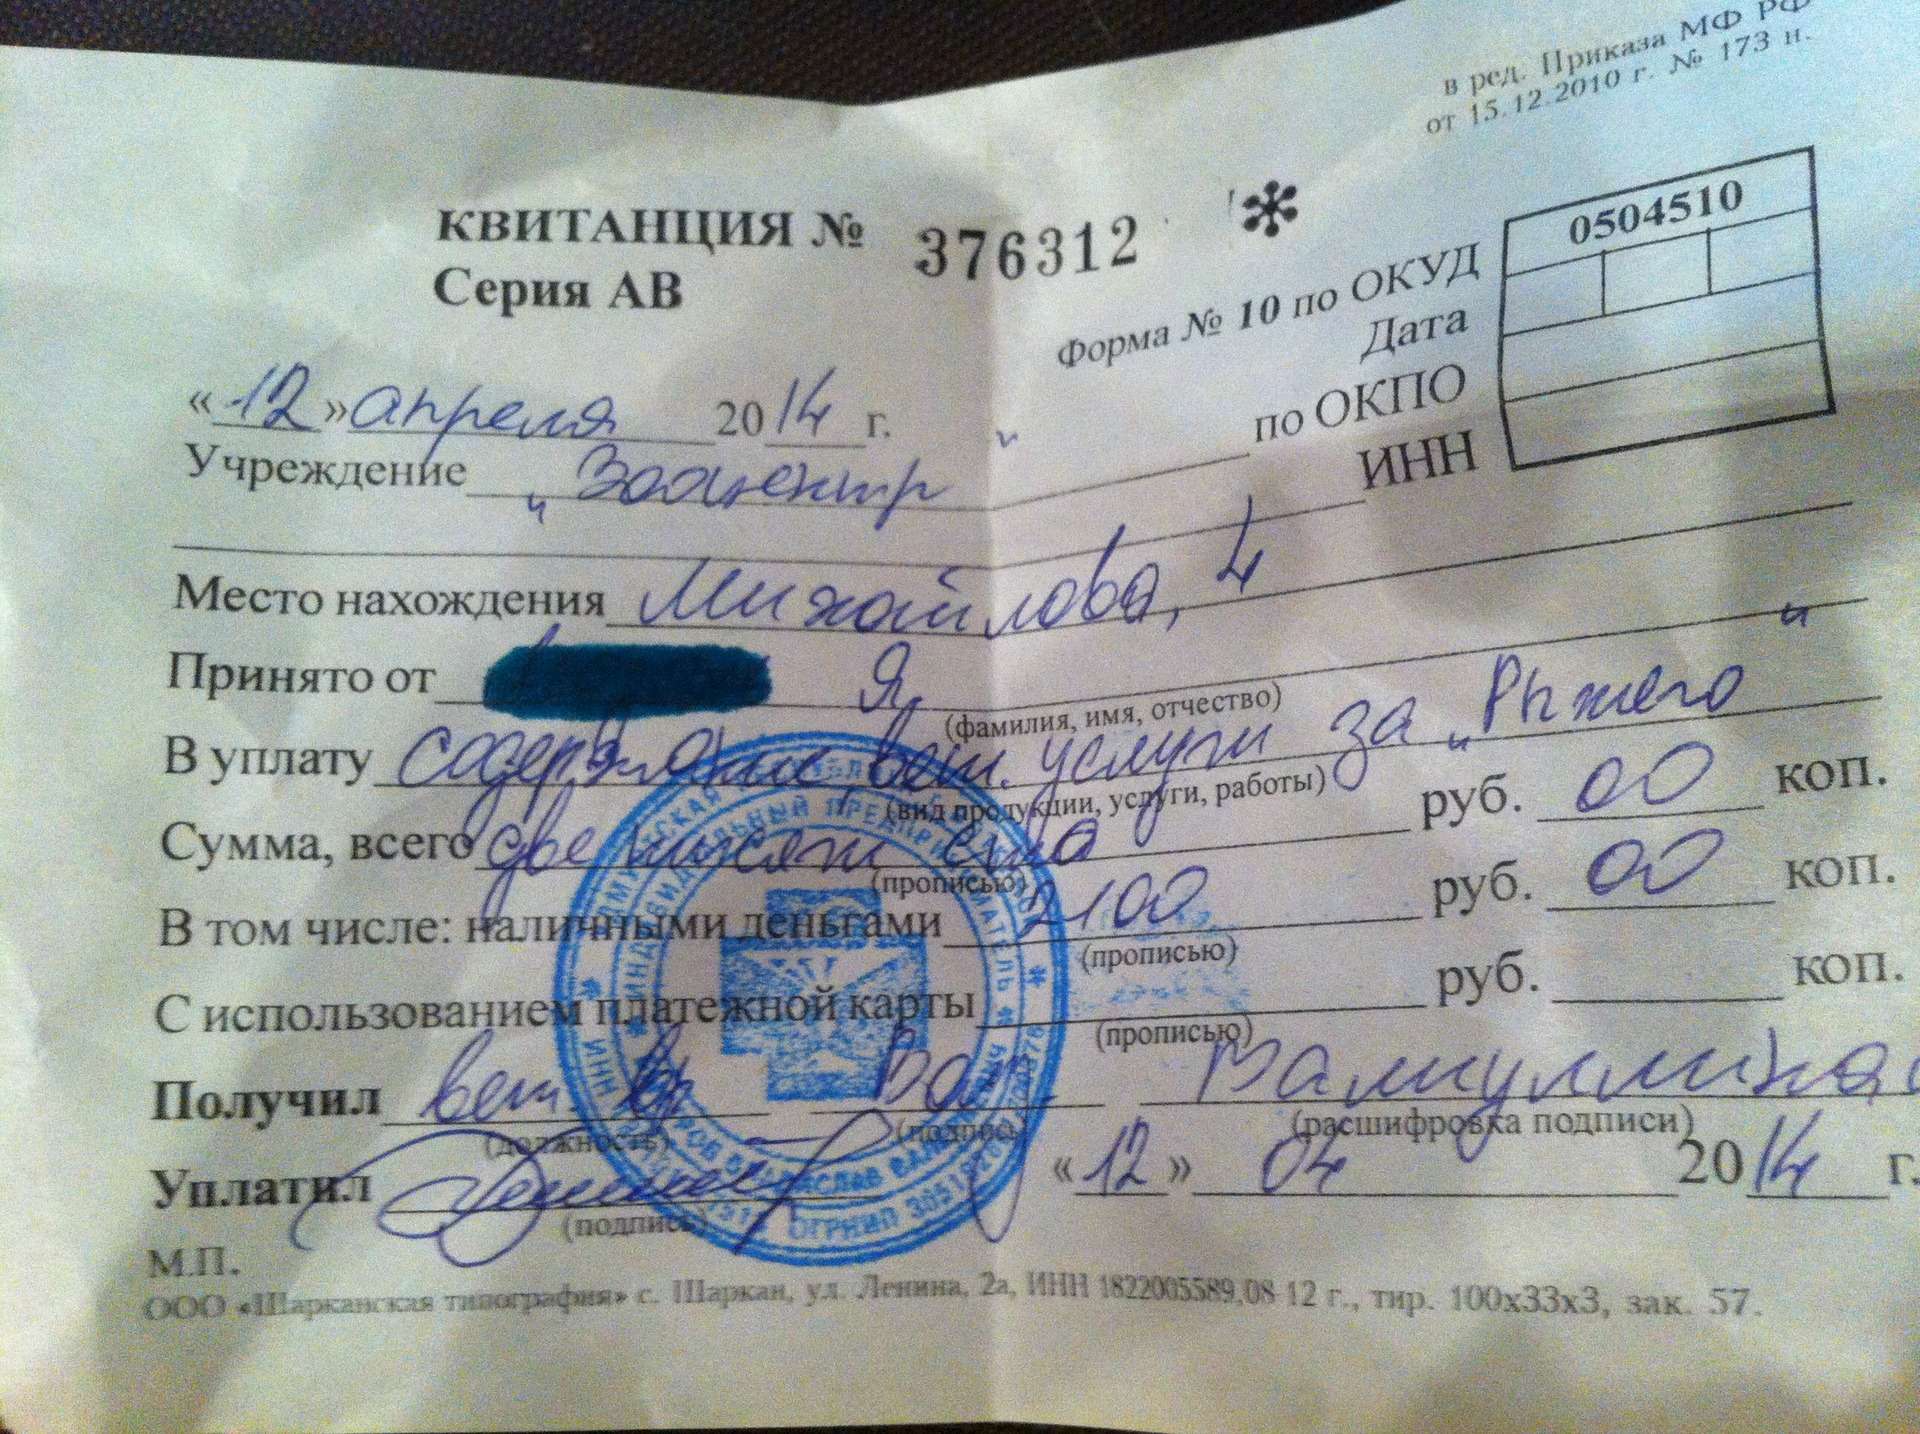 в ред. Приказа МФ РФ
от 15.12.2010 г. № 173 н.
КВИТАНЦИЯ № 376312 *
Серия АВ
Форма № 10 по ОКУД 0504510
Дата
«12» апреля 2014 г.
по ОКПО
Учреждение "Зооцентр"
ИНН
Место нахождения Михайлова, 4
Принято от Я.
(фамилия, имя, отчество)
В уплату содержание, вет. услуги за "Рыжего"
(вид продукции, услуги, работы)
Сумма, всего две тысячи сто руб. 00 коп.
(прописью)
В том числе: наличными деньгами 2100 руб. 00 коп.
(прописью)
С использованием платежной карты руб. коп.
(прописью)
Получил вет. вр Вал Валиуллина
(должность) (подпись) (расшифровка подписи)
Уплатил «12» 04 2014 г.
(подпись)
М.П.
ООО «Шарканская типография» с. Шаркан, ул. Ленина, 2а, ИНН 1822005589,08 12 г., тир. 100х33х3, зак. 57.
ИНДИВИДУАЛЬНЫЙ ПРЕДПРИНИМАТЕЛЬ
ОГРНИП